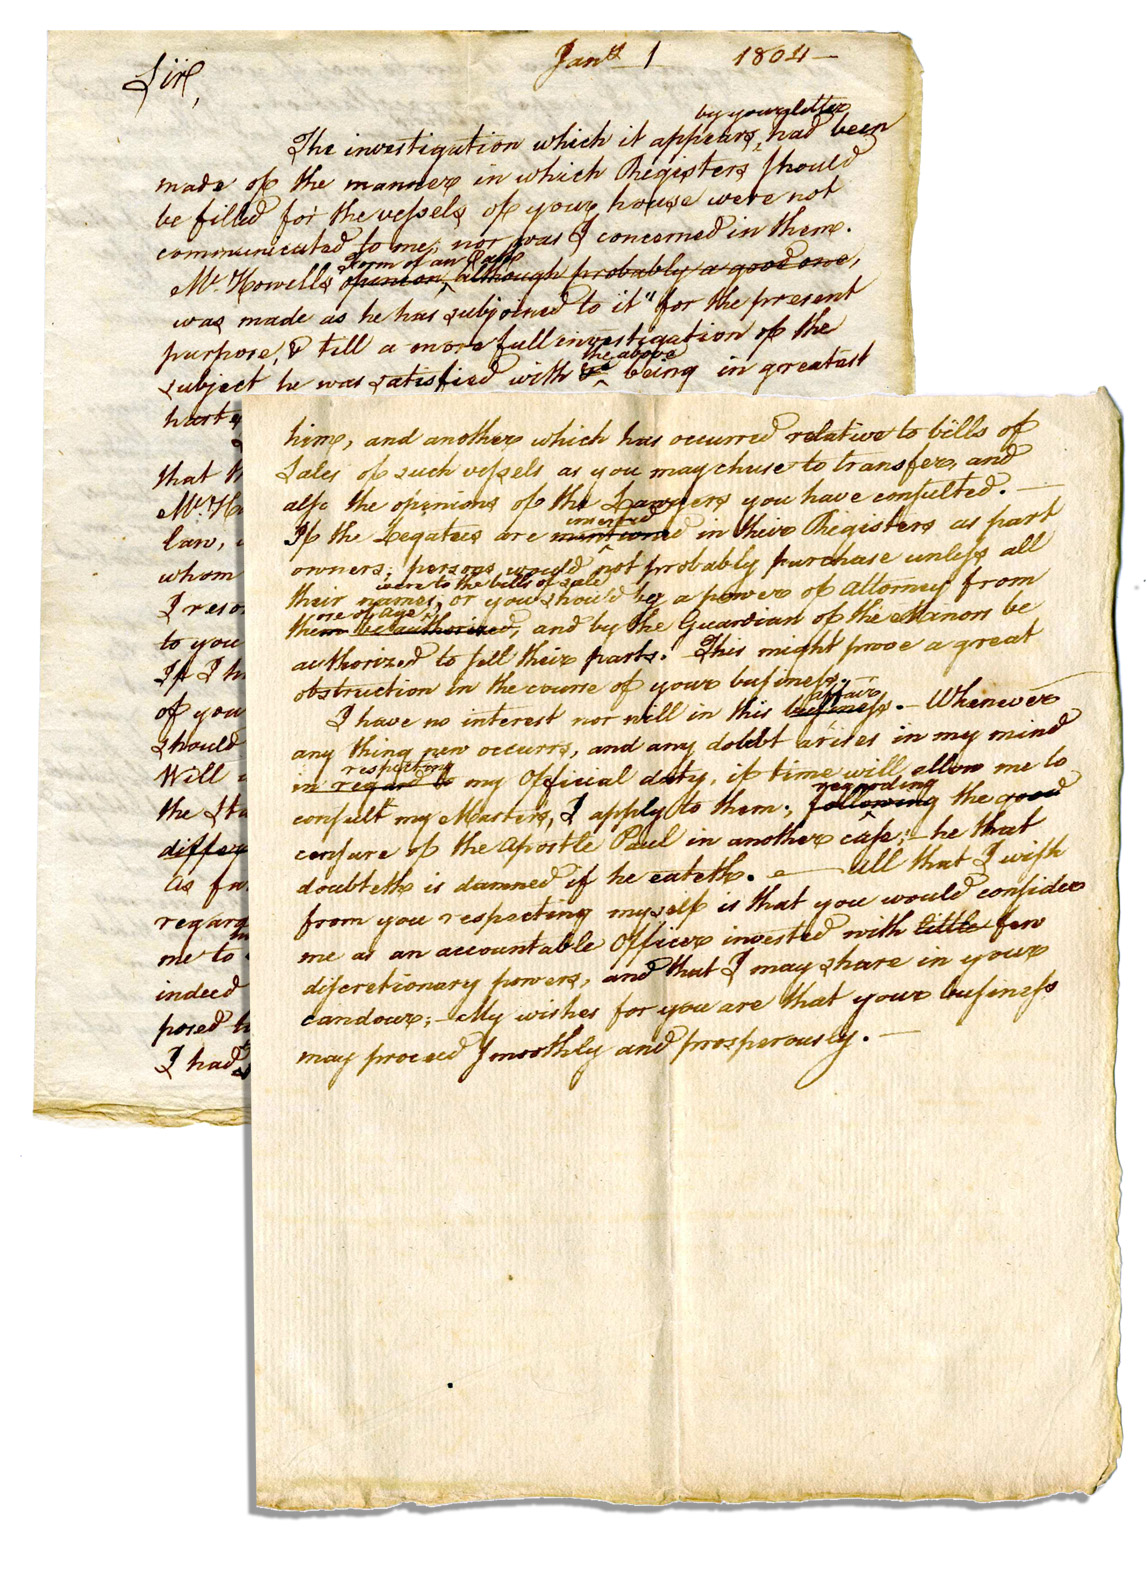 Sir,
Jany 1 1804 —
by your letter
The investigation which it appears, had been
made of the manner in which Registers should
be filled for the vessels of your house were not
communicated to me, nor was I concerned in them.
form of an Oath
Mr. Howells opinion, although probably a good one,
was made as he has subjoined to it "for the present
purpose, & till a more full investigation of the
the above
subject he was satisfied with being in greatest
haste
that
Mr. Ho
law,
whom
I reso
to you
If I h
of you
should
Will
the sta
differ
as fa
regar
me to
indeed
posed
I had
him, and another which has occurred relative to bills of
Sales of such vessels as you may chuse to transfer, and
also the opinions of the Lawyers you have consulted. —
inserted
If the Legatees are mentioned in their Registers as part
owners; persons would not probably purchase unless all
were to the bills of sale
their names, or you should by a power of Attorney from
are of age
them be authorized, and by the Guardian of the Minors be
authorized to sell their parts. This might prove a great
obstruction in the course of your business.
affair
I have no interest nor will in this business. — Whenever
any thing new occurrs, and any doubt arises in my mind
respecting
in regard to my Official duty, if time will allow me to
regarding
consult my Masters, I apply to them; following the good
censure of the Apostle Paul in another case; "— he that
doubteth is damned if he eateth. — All that I wish
from you respecting myself is that you would consider
me as an accountable Officer invested with little few
discretionary powers, and that I may share in your
candour; — My wishes for you are that your business
may proceed smoothly and prosperously. —